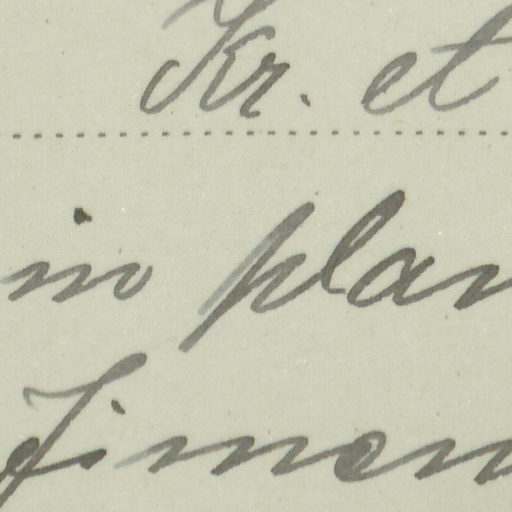 Kr. et
in plan
Jimen